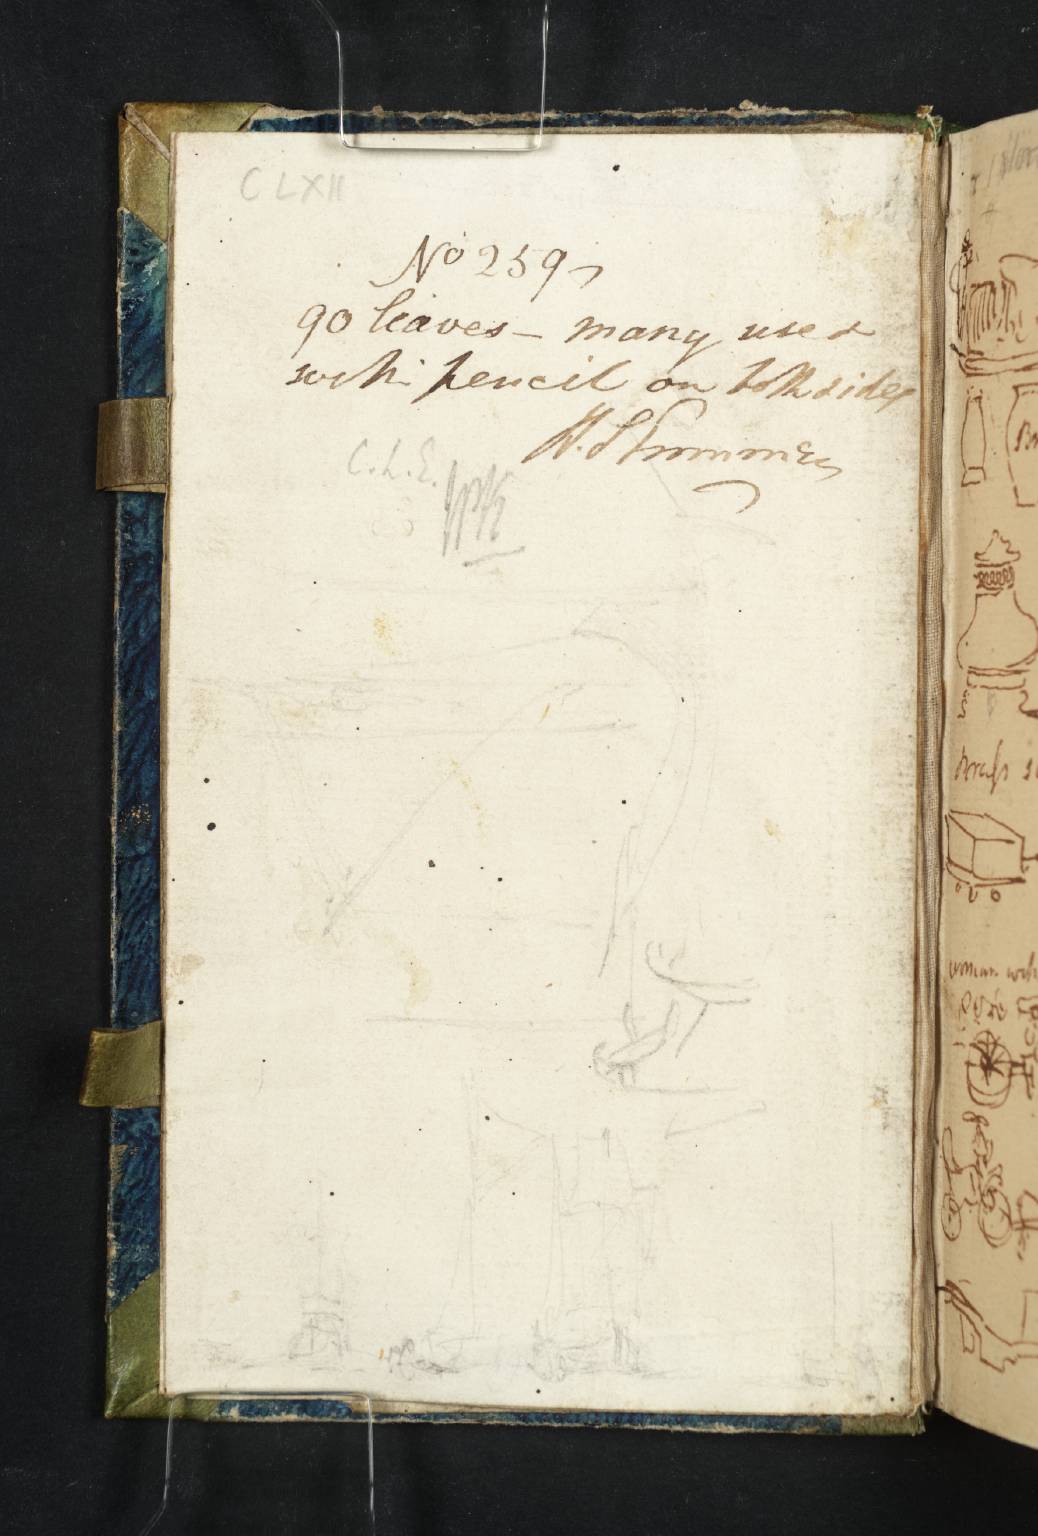 CLXII
No 259
90 leaves – many used
with pencil on both sides
H. S Trimmer
C.L.E.
Brass
woman with